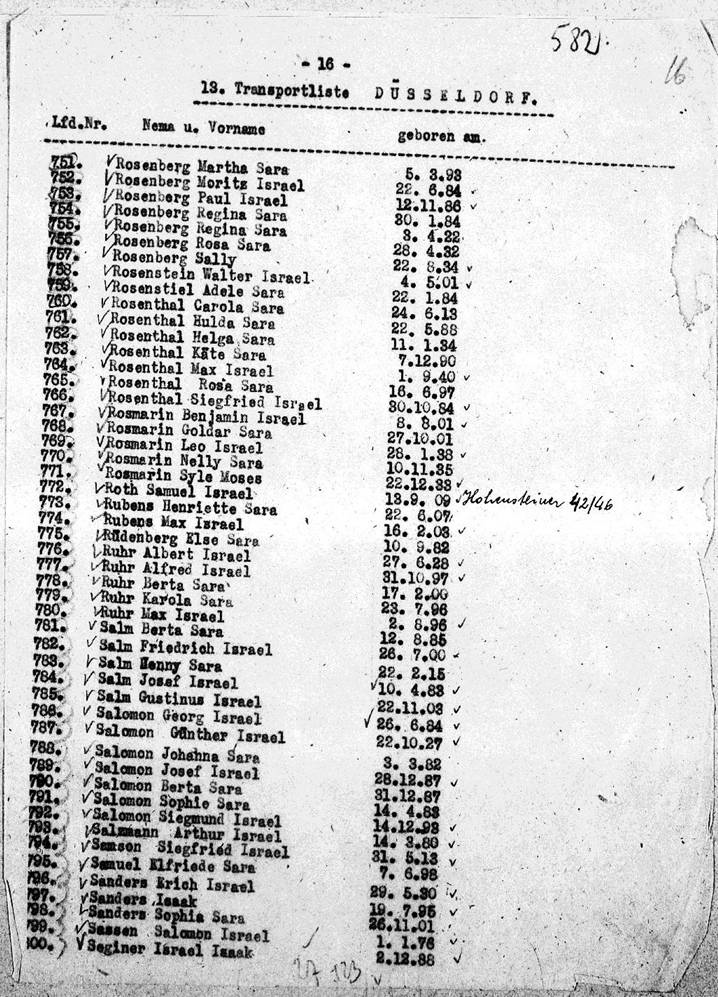 582.
16
- 16 -
13. Transportliste DÜSSELDORF.
Lfd.Nr. Nema u. Vorname geboren am.
751. Rosenberg Martha Sara 5. 3.93
752. Rosenberg Moritz Israel 22. 6.84
753. Rosenberg Paul Israel 12.11.86
754. Rosenberg Regina Sara 30. 1.84
755. Rosenberg Regina Sara 3. 4.22
756. Rosenberg Rosa Sara 28. 4.32
757. Rosenberg Sally 22. 8.34
758. Rosenstein Walter Israel 4. 5.01
759. Rosenstiel Adele Sara 22. 1.84
760. Rosenthal Carola Sara 24. 6.13
761. Rosenthal Hulda Sara 22. 5.88
762. Rosenthal Helga Sara 11. 1.34
763. Rosenthal Käte Sara 7.12.90
764. Rosenthal Max Israel 1. 9.40
765. Rosenthal Rosa Sara 16. 6.97
766. Rosenthal Siegfried Israel 30.10.84
767. Rosmarin Benjamin Israel 8. 8.01
768. Rosmarin Goldar Sara 27.10.01
769. Rosmarin Leo Israel 28. 1.38
770. Rosmarin Nelly Sara 10.11.35
771. Rosmarin Syle Moses 22.12.38
772. Roth Samuel Israel 13.9. 09 Hohensteiner 42/46
773. Rubens Henriette Sara 22. 6.07
774. Rubens Max Israel 16. 2.03
775. Rüdenberg Else Sara 10. 9.82
776. Ruhr Albert Israel 27. 6.28
777. Ruhr Alfred Israel 31.10.97
778. Ruhr Berta Sara 17. 2.00
779. Ruhr Karola Sara 23. 7.96
780. Ruhr Max Israel 2. 8.96
781. Salm Berta Sara 12. 8.85
782. Salm Friedrich Israel 26. 7.00
783. Salm Henny Sara 22. 2.15
784. Salm Josef Israel 10. 4.83
785. Salm Gustinus Israel 22.11.03
786. Salomon Georg Israel 26. 6.84
787. Salomon Günther Israel 22.10.27
788. Salomon Johahna Sara 3. 3.82
789. Salomon Josef Israel 28.12.87
790. Salomon Berta Sara 31.12.87
791. Salomon Sophie Sara 14. 4.83
792. Salomon Siegmund Israel 14.12.98
793. Salzmann Arthur Israel 14. 3.80
794. Samson Siegfried Israel 31. 5.13
795. Samuel Elfriede Sara 7. 6.98
796. Sanders Erich Israel 29. 5.30
797. Sanders Isaak 19. 7.95
798. Sanders Sophia Sara 26.11.01
799. Sassen Salomon Israel 1. 1.76
800. Seginer Israel Isaak 2.12.88
27 123